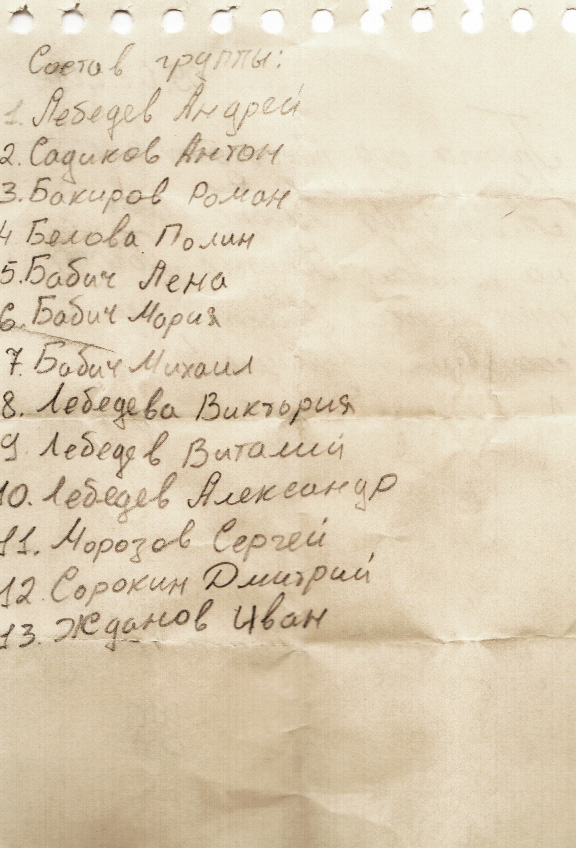 Состав группы:
1. Лебедев Андрей
2. Садиков Антон
3. Бакиров Роман
4 Белова Полин
5. Бабич Лена
6. Бабич Мария
7. Бабич Михаил
8. Лебедева Виктория
9. Лебедев Виталий
10. Лебедев Александр
11. Морозов Сергей
12. Сорокин Дмитрий
13. Жданов Иван